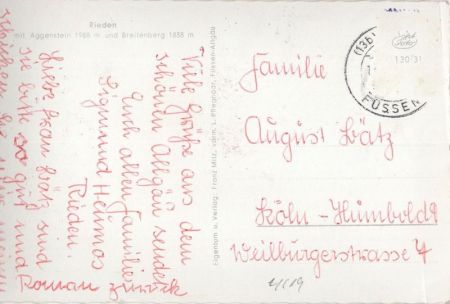 Rieden
mit Aggenstein 1986 m und Breitenberg 1838 m
Viele Grüße aus dem
schönen Allgäu sendet
Euch allen Familie
Sigmund Helmos
Rieden.
Liebe Frau Bätz sind
sie bitte so gut und
schicken
Roman zurück
Eigentum u. Verlag: Franz Milz, vorm. L. Pfeghaar, Füssen-Allgäu
(13b)
FÜSSEN
130/31
Familie
August Bätz
Köln-Humboldt
Weilburgerstrasse 4